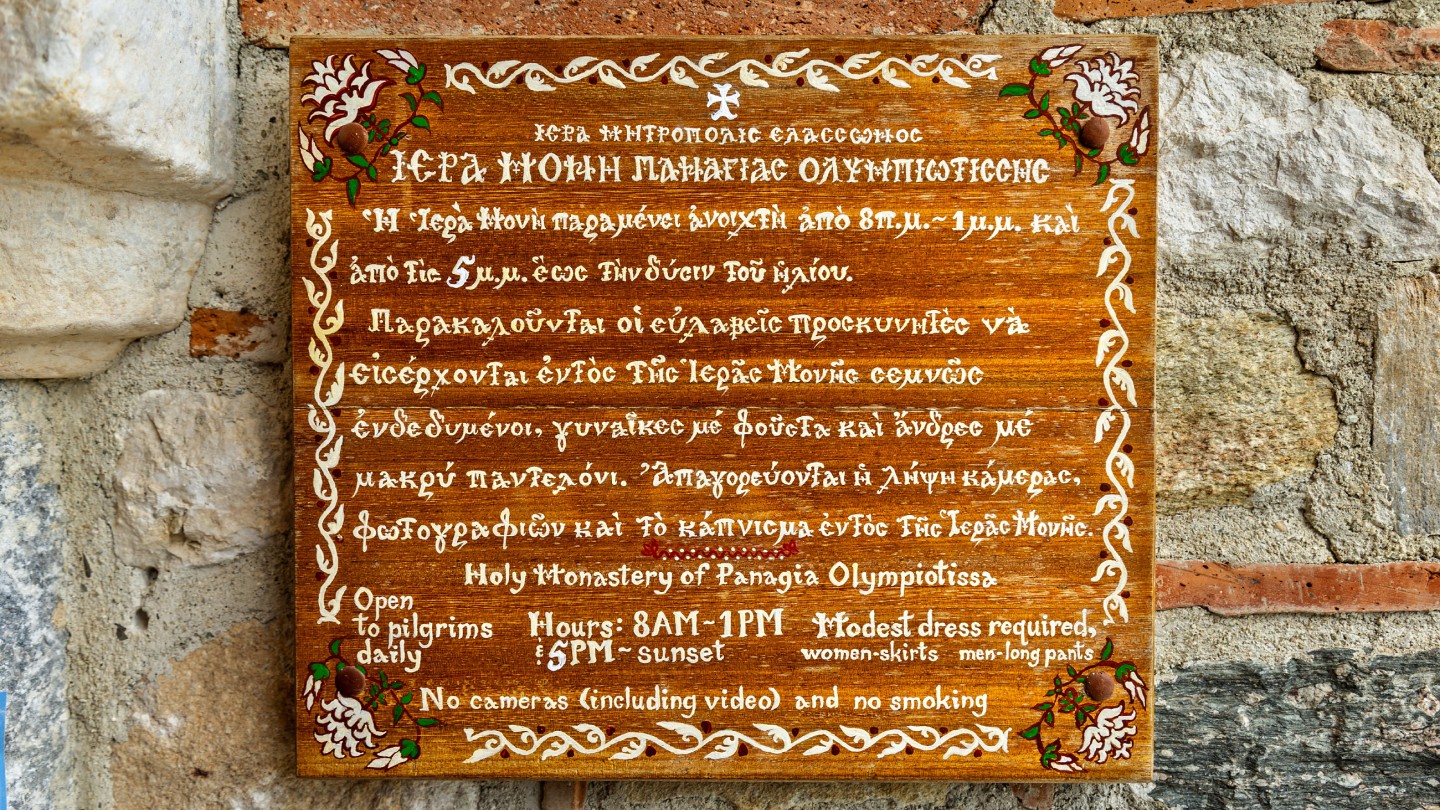 ΙΕΡΑ ΜΗΤΡΟΠΟΛΙΣ ΕΛΑΣΣΩΝΟΣ
ΙΕΡΑ ΜΟΝΗ ΠΑΝΑΓΙΑΣ ΟΛΥΜΠΙΩΤΙΣΣΗΣ
Ἡ Ἱερὰ Μονὴ παραμένει ἀνοιχτὴ ἀπὸ 8π.μ.~1μ.μ. καὶ
ἀπὸ τὶς 5μ.μ. ἕως τὴν δύσιν τοῦ ἡλίου.
Παρακαλοῦνται οἱ εὐλαβεῖς προσκυνητὲς νὰ
εἰσέρχονται ἐντὸς τῆς Ἱερᾶς Μονῆς σεμνῶς
ἐνδεδυμένοι, γυναῖκες μέ φοῦστα καὶ ἄνδρες μέ
μακρύ παντελόνι. Ἀπαγορεύονται ἡ λήψη κάμερας,
φωτογραφιῶν καὶ τὸ κάπνισμα ἐντὸς τῆς Ἱερᾶς Μονῆς.
Holy Monastery of Panagia Olympiotissa
Open
to pilgrims
daily
Hours: 8AM~1PM
& 5PM~sunset
Modest dress required,
women-skirts men-long pants
No cameras (including video) and no smoking